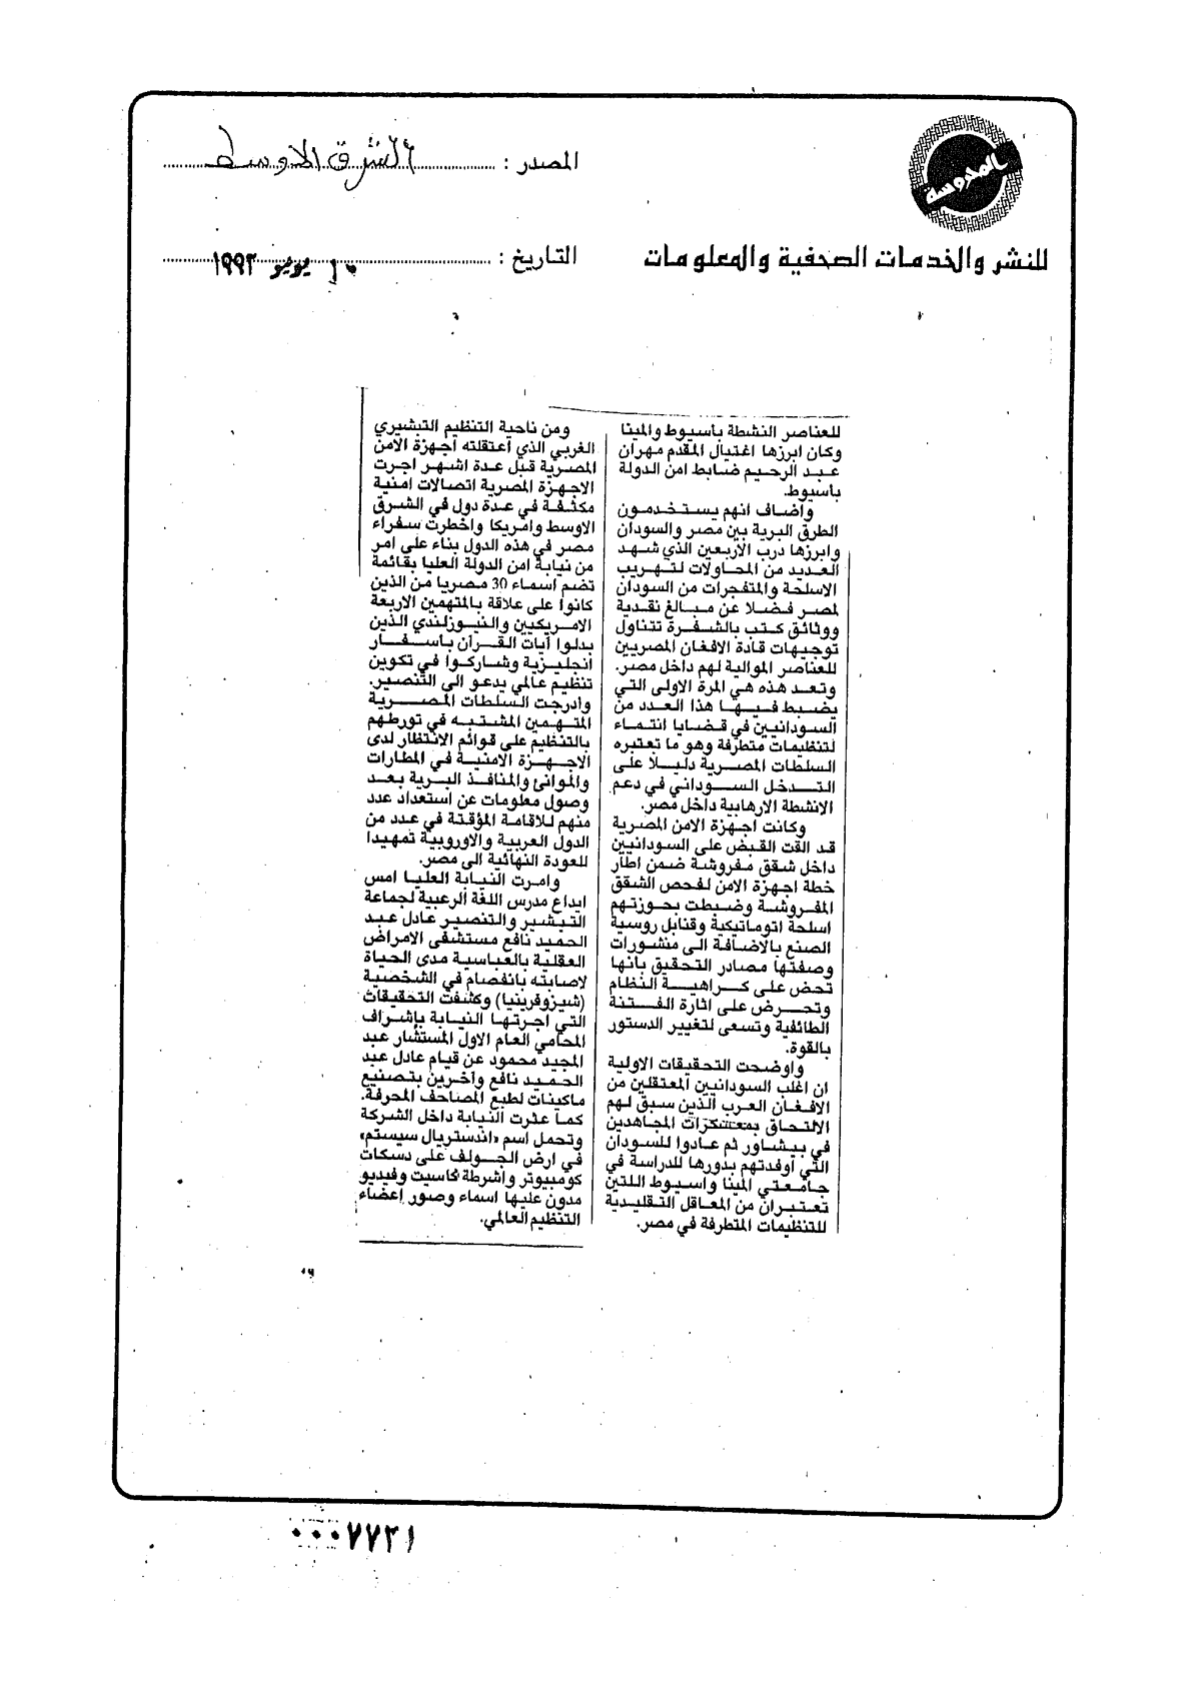 المصدر : الشرق الاوسط
المحروسة
للنشر والخدمات الصحفية والمعلومات
التاريخ : ١٠ يونيو ١٩٩٢
للعناصر النشطة باسيوط والمينا
وكان ابرزها اغتيال المقدم مهران
عبد الرحيم ضابط امن الدولة
باسيوط.
واضاف انهم يستخدمون
الطرق البرية بين مصر والسودان
وابرزها درب الاربعين الذي شهد
العديد من المحاولات لتهريب
الاسلحة والمتفجرات من السودان
لمصر فضلا عن مبالغ نقدية
ووثائق كتب بالشفرة تتناول
توجيهات قادة الافغان المصريين
للعناصر الموالية لهم داخل مصر.
وتعد هذه هي المرة الاولى التي
يضبط فيها هذا العدد من
السودانيين في قضايا انتماء
لتنظيمات متطرفة وهو ما تعتبره
السلطات المصرية دليلا على
التدخل السوداني في دعم
الانشطة الارهابية داخل مصر.
وكانت اجهزة الامن المصرية
قد القت القبض على السودانيين
داخل شقق مفروشة ضمن اطار
خطة اجهزة الامن لفحص الشقق
المفروشة وضبطت بحوزتهم
اسلحة اتوماتيكية وقنابل روسية
الصنع بالاضافة الى منشورات
وصفتها مصادر التحقيق بانها
تحض على كراهية النظام
وتحرض على اثارة الفتنة
الطائفية وتسعى لتغيير الدستور
بالقوة.
واوضحت التحقيقات الاولية
ان اغلب السودانيين المعتقلين من
الافغان العرب الذين سبق لهم
الالتحاق بمعسكرات المجاهدين
في بيشاور ثم عادوا للسودان
التي اوفدتهم بدورها للدراسة في
جامعتي المينا واسيوط اللتين
تعتبران من المعاقل التقليدية
للتنظيمات المتطرفة في مصر.
ومن ناحية التنظيم التبشيري
الغربي الذي اعتقلته اجهزة الامن
المصرية قبل عدة اشهر اجرت
الاجهزة المصرية اتصالات امنية
مكثفة في عدة دول في الشرق
الاوسط وامريكا واخطرت سفراء
مصر في هذه الدول بناء على امر
من نيابة امن الدولة العليا بقائمة
تضم اسماء 30 مصريا من الذين
كانوا على علاقة بالمتهمين الاربعة
الامريكيين والنيوزلندي الذين
بدلوا آيات القرآن باسفار
انجليزية وشاركوا في تكوين
تنظيم عالمي يدعو الى التنصير.
وادرجت السلطات المصرية
المتهمين المشتبه في تورطهم
بالتنظيم على قوائم الانتظار لدى
الاجهزة الامنية في المطارات
والموانئ والمنافذ البرية بعد
وصول معلومات عن استعداد عدد
منهم للاقامة المؤقتة في عدد من
الدول العربية والاوروبية تمهيدا
للعودة النهائية الى مصر.
وامرت النيابة العليا امس
ايداع مدرس اللغة الرعبية لجماعة
التبشير والتنصير عادل عبد
الحميد نافع مستشفى الامراض
العقلية بالعباسية مدى الحياة
لاصابته بانفصام في الشخصية
(شيزوفرينيا) وكشفت التحقيقات
التي اجرتها النيابة بإشراف
المحامي العام الاول المستشار عبد
المجيد محمود عن قيام عادل عبد
الحميد نافع واخرين بتصنيع
ماكينات لطبع المصاحف المحرفة.
كما عثرت النيابة داخل الشركة
وتحمل اسم «اندستريال سيستم»
في ارض الجولف على دسكات
كومبيوتر واشرطة كاسيت وفيديو
مدون عليها اسماء وصور إعضاء
التنظيم العالمي.
٠٠٠٧٧٢١